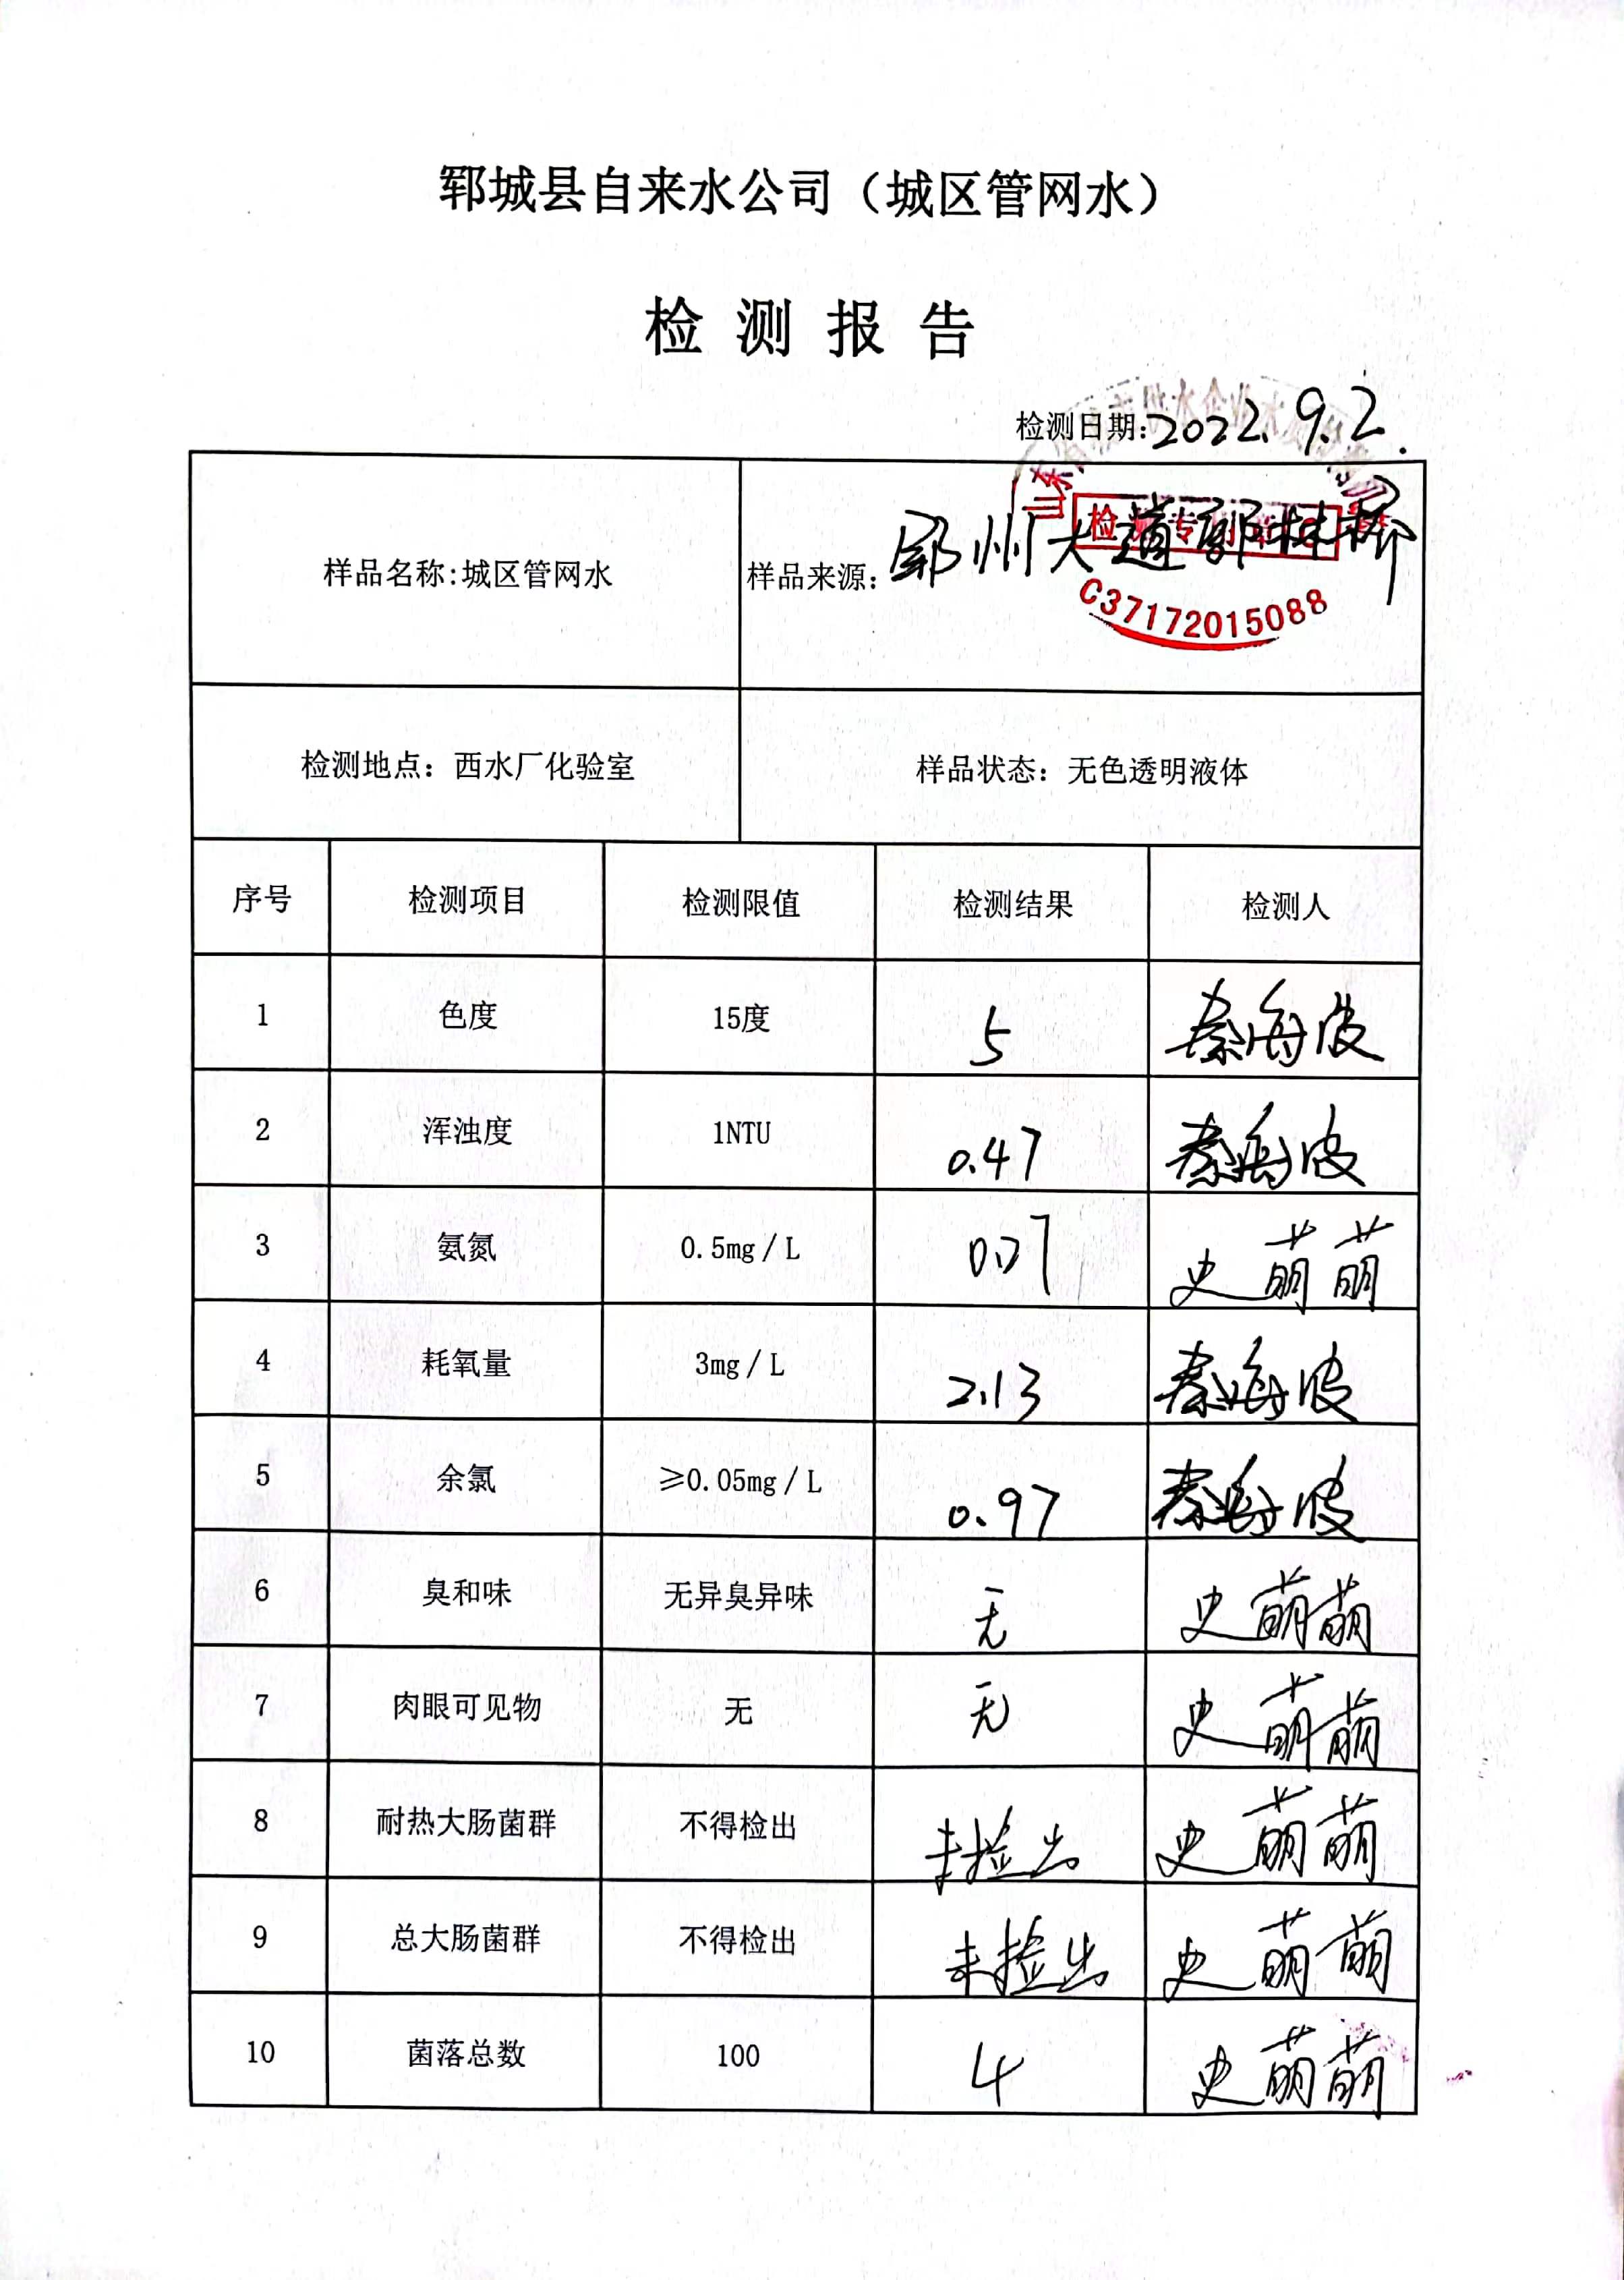 郓城县自来水公司（城区管网水）
检测报告
检测日期：2022.9.2.
样品名称:城区管网水 样品来源：郓州大道郭林桥
检测专用章
C37172015088
检测地点：西水厂化验室 样品状态：无色透明液体
序号 检测项目 检测限值 检测结果 检测人
1 色度 15度 5 秦海波
2 浑浊度 1NTU 0.47 秦海波
3 氨氮 0.5mg/L 史萌萌
4 耗氧量 3mg/L 2.13 秦海波
5 余氯 ≥0.05mg/L 0.97 秦海波
6 臭和味 无异臭异味 无 史萌萌
7 肉眼可见物 无 无 史萌萌
8 耐热大肠菌群 不得检出 未检出 史萌萌
9 总大肠菌群 不得检出 未检出 史萌萌
10 菌落总数 100 4 史萌萌